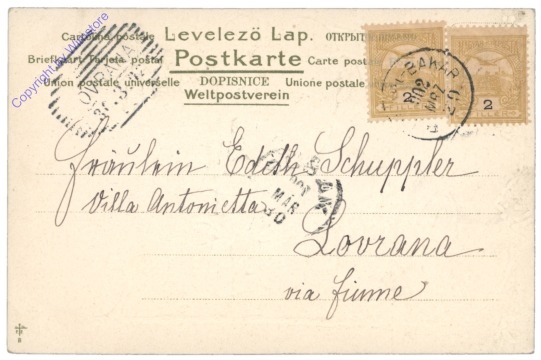 Cartolina postale Levelező Lap.
Briefkaart Tarjeta postal Postkarte Carte postale
Union postale universelle DOPISNICE Unione postale
Weltpostverein
Copyright by Wnestore
LOVRANA
BAKAR
902
2
2
MAR
Fräulein Edith Schuppler
Villa Antonietta
Lovrana
via fiume
8